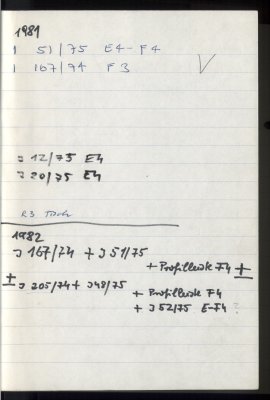 1981
1 51/75 E4-F4
1 167/74 F3
J 12/75 E4
J 20/75 E4
R3
1982
J 167/74 + J 51/75
+ Profilleiste F4 +
+ J 205/74 + J 48/75
+ Profilleiste F4
+ J 52/75 E-F4 ?